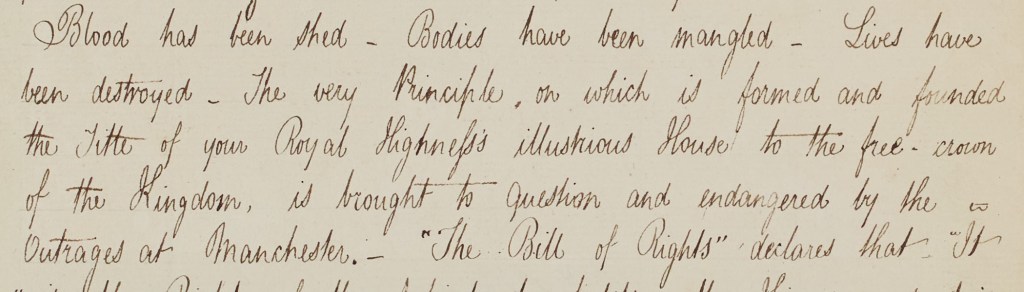 Blood has been shed - Bodies have been mangled - Lives have
been destroyed - The very Principle, on which is formed and founded
the Title of your Royal Highness's illustrious House to the free-crown
of the Kingdom, is brought to question and endangered by the
Outrages at Manchester. - "The Bill of Rights" declares that "It